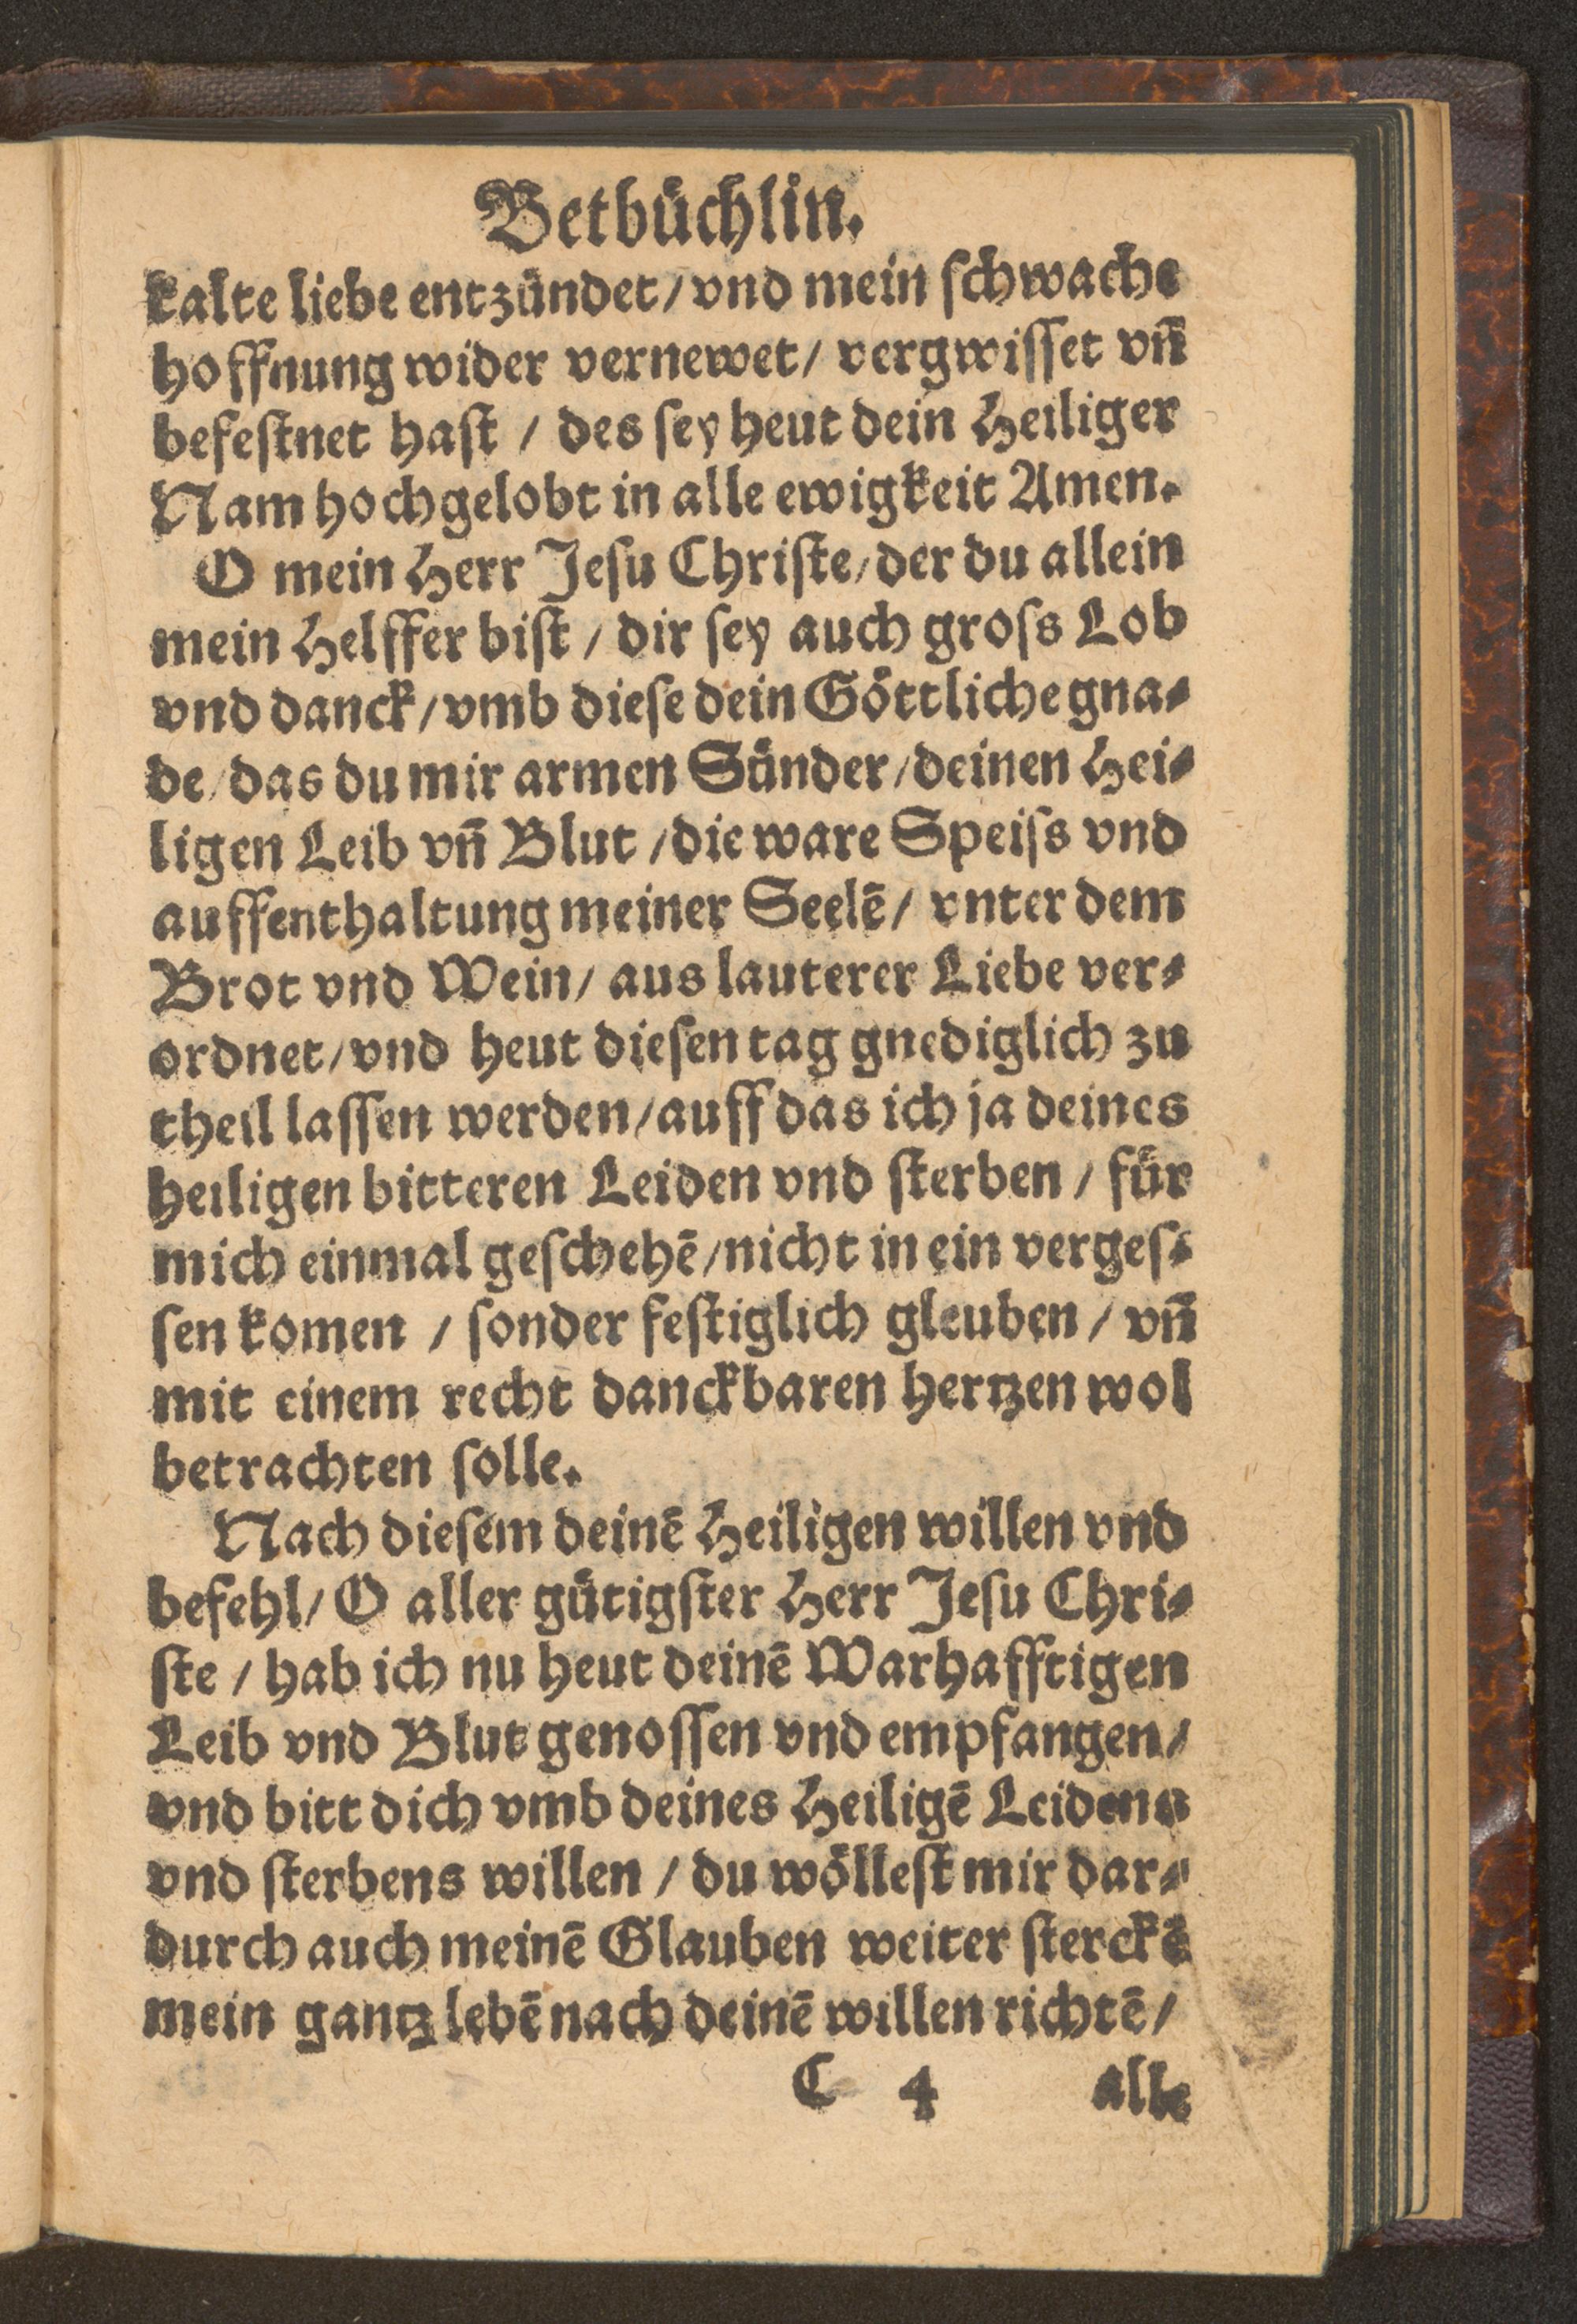 Betbüchlin.
kalte liebe entzündet / vnd mein ſchwache
hoffnung wider vernewet / vergwiſſet vn̄
befeſtnet haſt / des ſey heut dein Heiliger
Nam hochgelobt in alle ewigkeit Amen.
O mein Herr Jeſu Chriſte / der du allein
mein Helffer biſt / dir ſey auch groſs Lob
vnd danck / vmb dieſe dein Göttliche gna⸗
de / das du mir armen Sünder / deinen Hei⸗
ligen Leib vn̄ Blut / die ware Speiſs vnd
auffenthaltung meiner Seelē / vnter dem
Brot vnd Wein / aus lauterer Liebe ver⸗
ordnet / vnd heut dieſen tag gnediglich zu
theil laſſen werden / auff das ich ja deines
heiligen bitteren Leiden vnd ſterben / für
mich einmal geſchehē / nicht in ein vergeſ⸗
ſen komen / ſonder feſtiglich gleuben / vn̄
mit einem recht danckbaren hertzen wol
betrachten ſolle.
Nach dieſem deinē Heiligen willen vnd
befehl / O aller gütigſter Herr Jeſu Chri⸗
ſte / hab ich nu heut deinē Warhafftigen
Leib vnd Blut genoſſen vnd empfangen /
vnd bitt dich vmb deines Heiligē Leidens
vnd ſterbens willen / du wölleſt mir dar⸗
durch auch meinē Glauben weiter ſterckē
mein gantz lebē nach deinē willen richtē /
C 4 alle